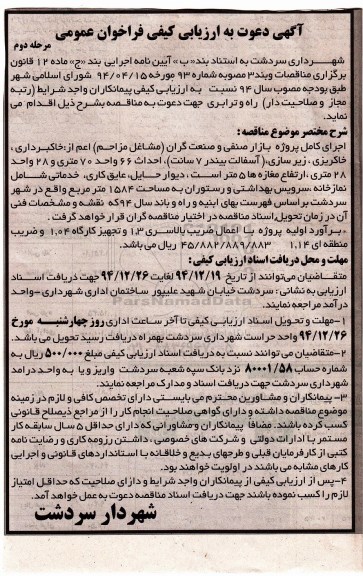 آگهی دعوت به ارزیابی کیفی فراخوان عمومی
مرحله دوم
شهرداری سردشت به استناد بند« ب » آیین نامه اجرایی بند «ج» ماده ۱۲ قانون
برگزاری مناقصات وبند۳ مصوبه شماره ۹۳ مورخه ۹۴/۰۴/۱۵ شورای اسلامی شهر
طبق بودجه مصوب سال ۹۴ نسبت به ارزیابی کیفی پیمانکاران واجد شرایط (رتبه
مجاز و صلاحیت دار) راه و ترابری جهت دعوت به مناقصه بشرح ذیل اقدام می
نماید.
شرح مختصر موضوع مناقصه:
اجرای کامل پروژه بازار صنفی و صنعت گران (مشاغل مزاحم) اعم از:خاکبرداری ،
خاکریزی ، زیرسازی،( آسفالت بیندر ۷ سانت)، احداث ۶۶ واحد ۷۰ متری و ۲۸ واحد
۲۸ متری ، ارتفاع مغازه ها ۵ متر است ، دیوار حایل، عایق کاری، خدماتی شامل
نمازخانه ،سرویس بهداشتی و رستوران به مساحت ۱۵۸۴ متر مربع واقع در شهر
سردشت بر اساس فهرست بهای ابنیه و راه و باند سال ۹۴که نقشه و مشخصات فنی
آن در زمان تحویل اسناد مناقصه در اختیار مناقصه گران قرار خواهد گرفت .
،برآورد اولیه پروژه با اعمال ضریب بالاسری ۱,۳ و تجهیز کارگاه ۱,۰۴ و ضریب
منطقه ای ۱,۱۴ ۴۵/۸۸۲/۸۸۹/۸۸۳ ریال می باشد.
مهلت و محل دریافت اسناد ارزیابی کیفی:
متقاضیان می‌توانند از تاریخ ۹۴/۱۲/۱۹ لغایت ۹۴/۱۲/۲۶ جهت دریافت اسناد
ارزیابی به نشانی : سردشت خیابان شهید علیپور ساختمان اداری شهرداری -واحد
درآمد مراجعه نمایند.
۱-مهلت و تحویل اسناد ارزیابی کیفی تا آخر ساعت اداری روز چهارشنبه مورخ
۹۴/۱۲/۲۶ واحد حراست شهرداری سردشت بهمراه دریافت رسید تحویل می باشد .
۲-متقاضیان می توانند نسبت به دریافت اسناد ارزیابی کیفی مبلغ ۵۰۰/۰۰۰ ریال به
شماره حساب ۸۰۰۰۱/۵۸ نزد بانک سپه شعبه سردشت واریز و یا به واحد درامد
شهرداری سردشت جهت دریافت اسناد و مدارک مراجعه نمایند.
۳- پیمانکاران و مشاورین محترم می بایستی دارای تخصص کافی و لازم در زمینه
موضوع مناقصه داشته و دارای گواهی صلاحیت انجام کار را از مراجع ذیصلاح قانونی
کسب کرده باشند. مضافا پیمانکاران ومشاورانی که دارای حداقل ۵ سال سابقه کار
مستمر با ادارات دولتی و شرکت های خصوصی ، داشتن رزومه کاری و رضایت نامه
کتبی از کارفرمایان قبلی و طرحهای بدیع و خلاقانه با استانداردهای قانونی و اجرایی
کارهای مشابه می باشند در اولویت خواهند بود.
۴-پس از ارزیابی کیفی از پیمانکاران واجد شرایط و دارای صلاحیت که حداقل امتیاز
لازم را کسب نموده باشند جهت دریافت اسناد مناقصه دعوت به عمل خواهد آمد.
شهردار سردشت